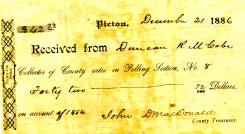 $42.22 Picton, December 21 1886
Received from Duncan R McCabe
Collector of County rates in Polling Section, No 8
Forty two 22/100 Dollars,
on account of 1886. John D McDonald
County Treasurer.